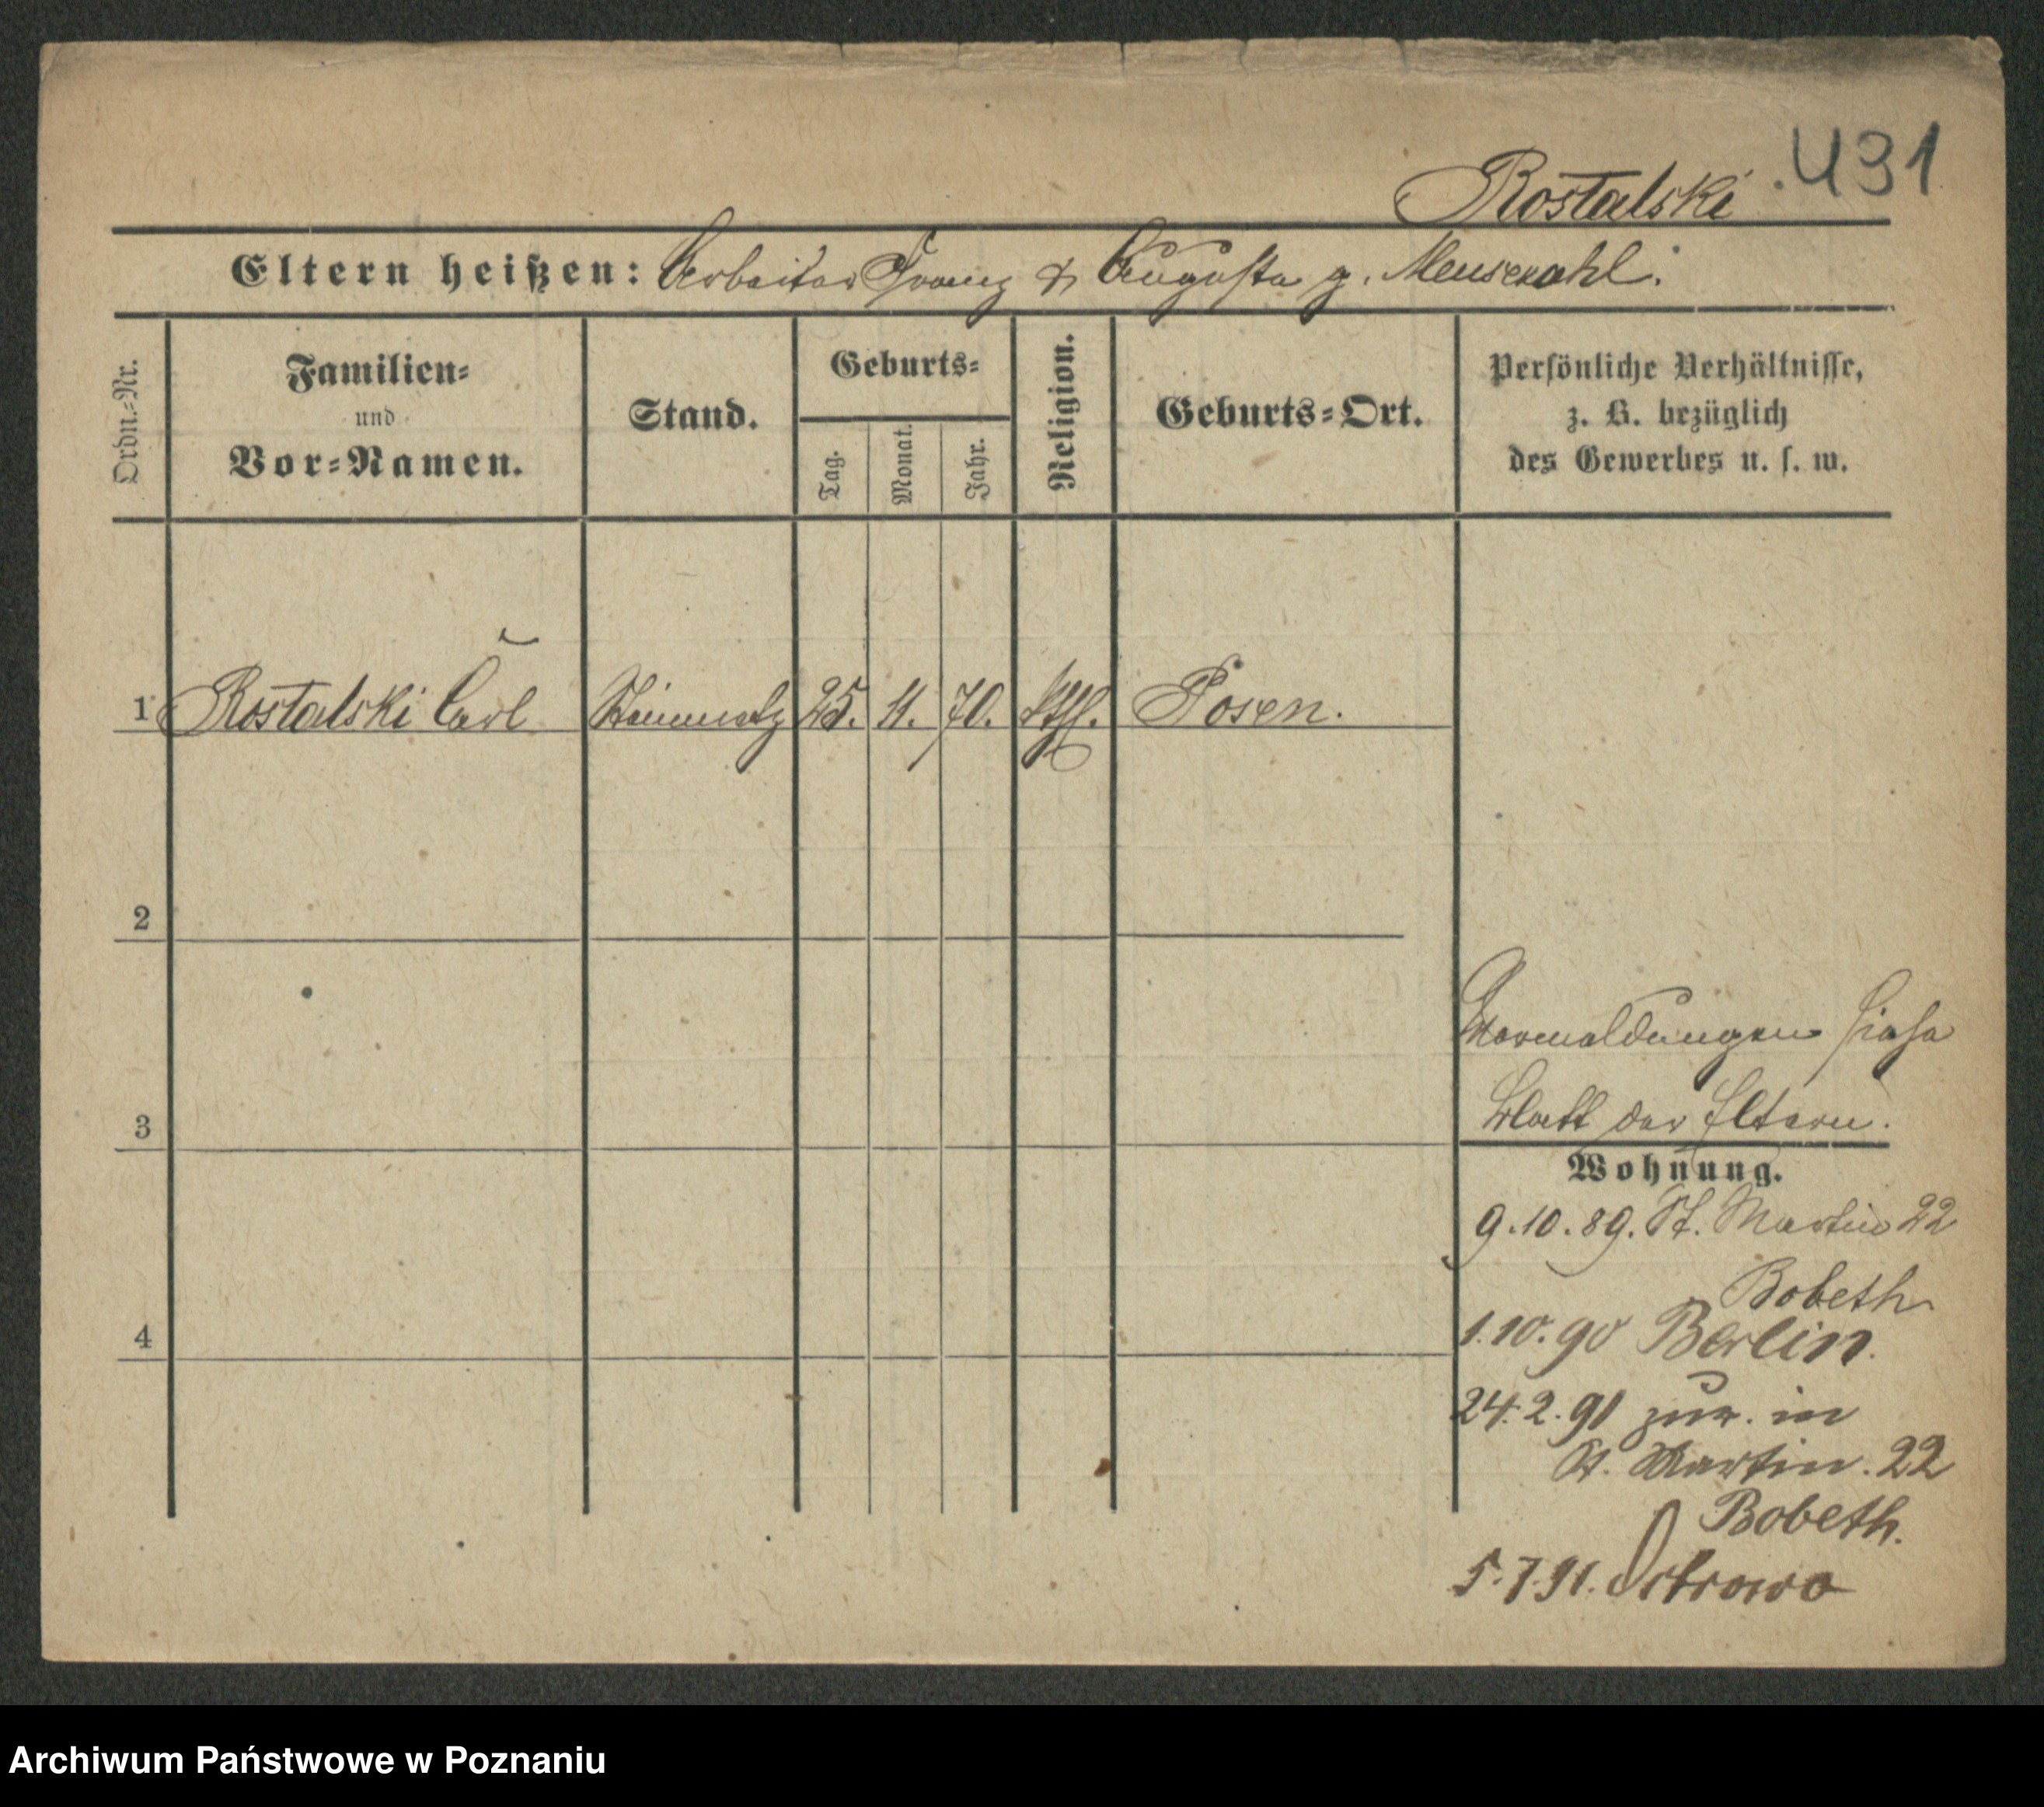 431
Rostalski
Eltern heißen: Arbeiter Franz & Augusta g. Meuserahl.
Ordn.-Nr.
Familien-
und
Vor-Namen.
Stand.
Geburts-
Tag.
Monat.
Jahr.
Religion.
Geburts-Ort.
Persönliche Verhältnisse,
z. B. bezüglich
des Gewerbes u. s. w.
1 Rostalski Carl Steinmetz 25. 11. 70. kth. Posen.
2
Vormeldungen siehe
3 Blatt der Eltern.
Wohnung.
9.10.89. St. Martin 22
Bobeth
4
1.10.90 Berlin.
24.2.91 zur. in
St. Martin. 22
Bobeth.
5.7.91. Ostrowo
Archiwum Państwowe w Poznaniu